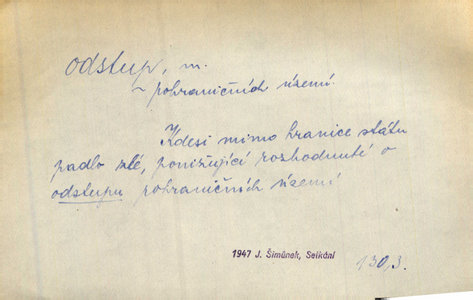 odstup, m.
~ pohraničních území.
Kdesi mimo hranice státu
padlo zlé, ponižující rozhodnutí o
odstupu pohraničních území
1947 J. Šimůnek, Setkání
130,3.